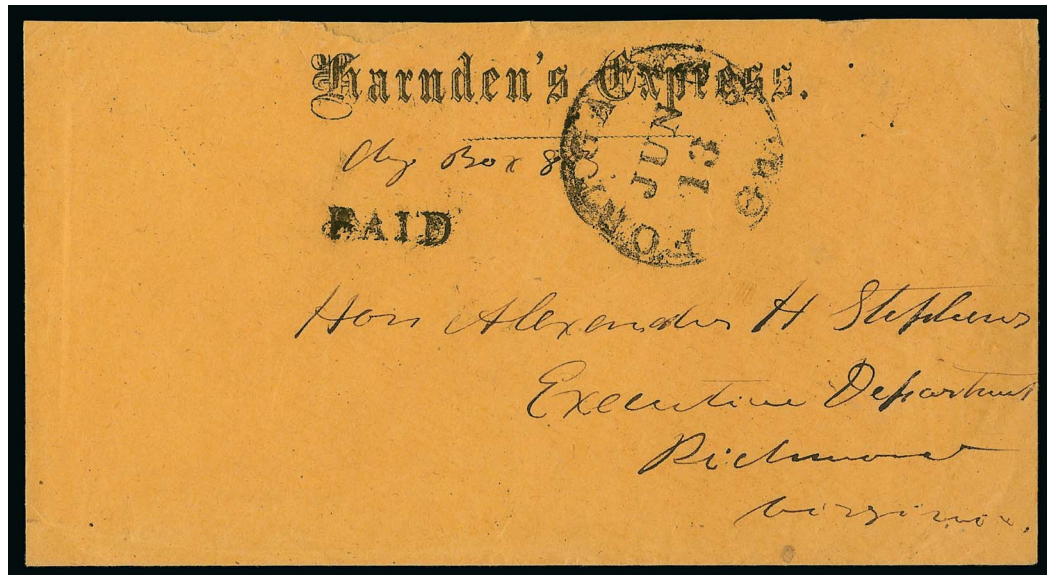 Harnden's Express.
Chg Box 8
PAID
JUN
13
Hon Alexander H Stephens
Executive Department
Richmond
Virginia.